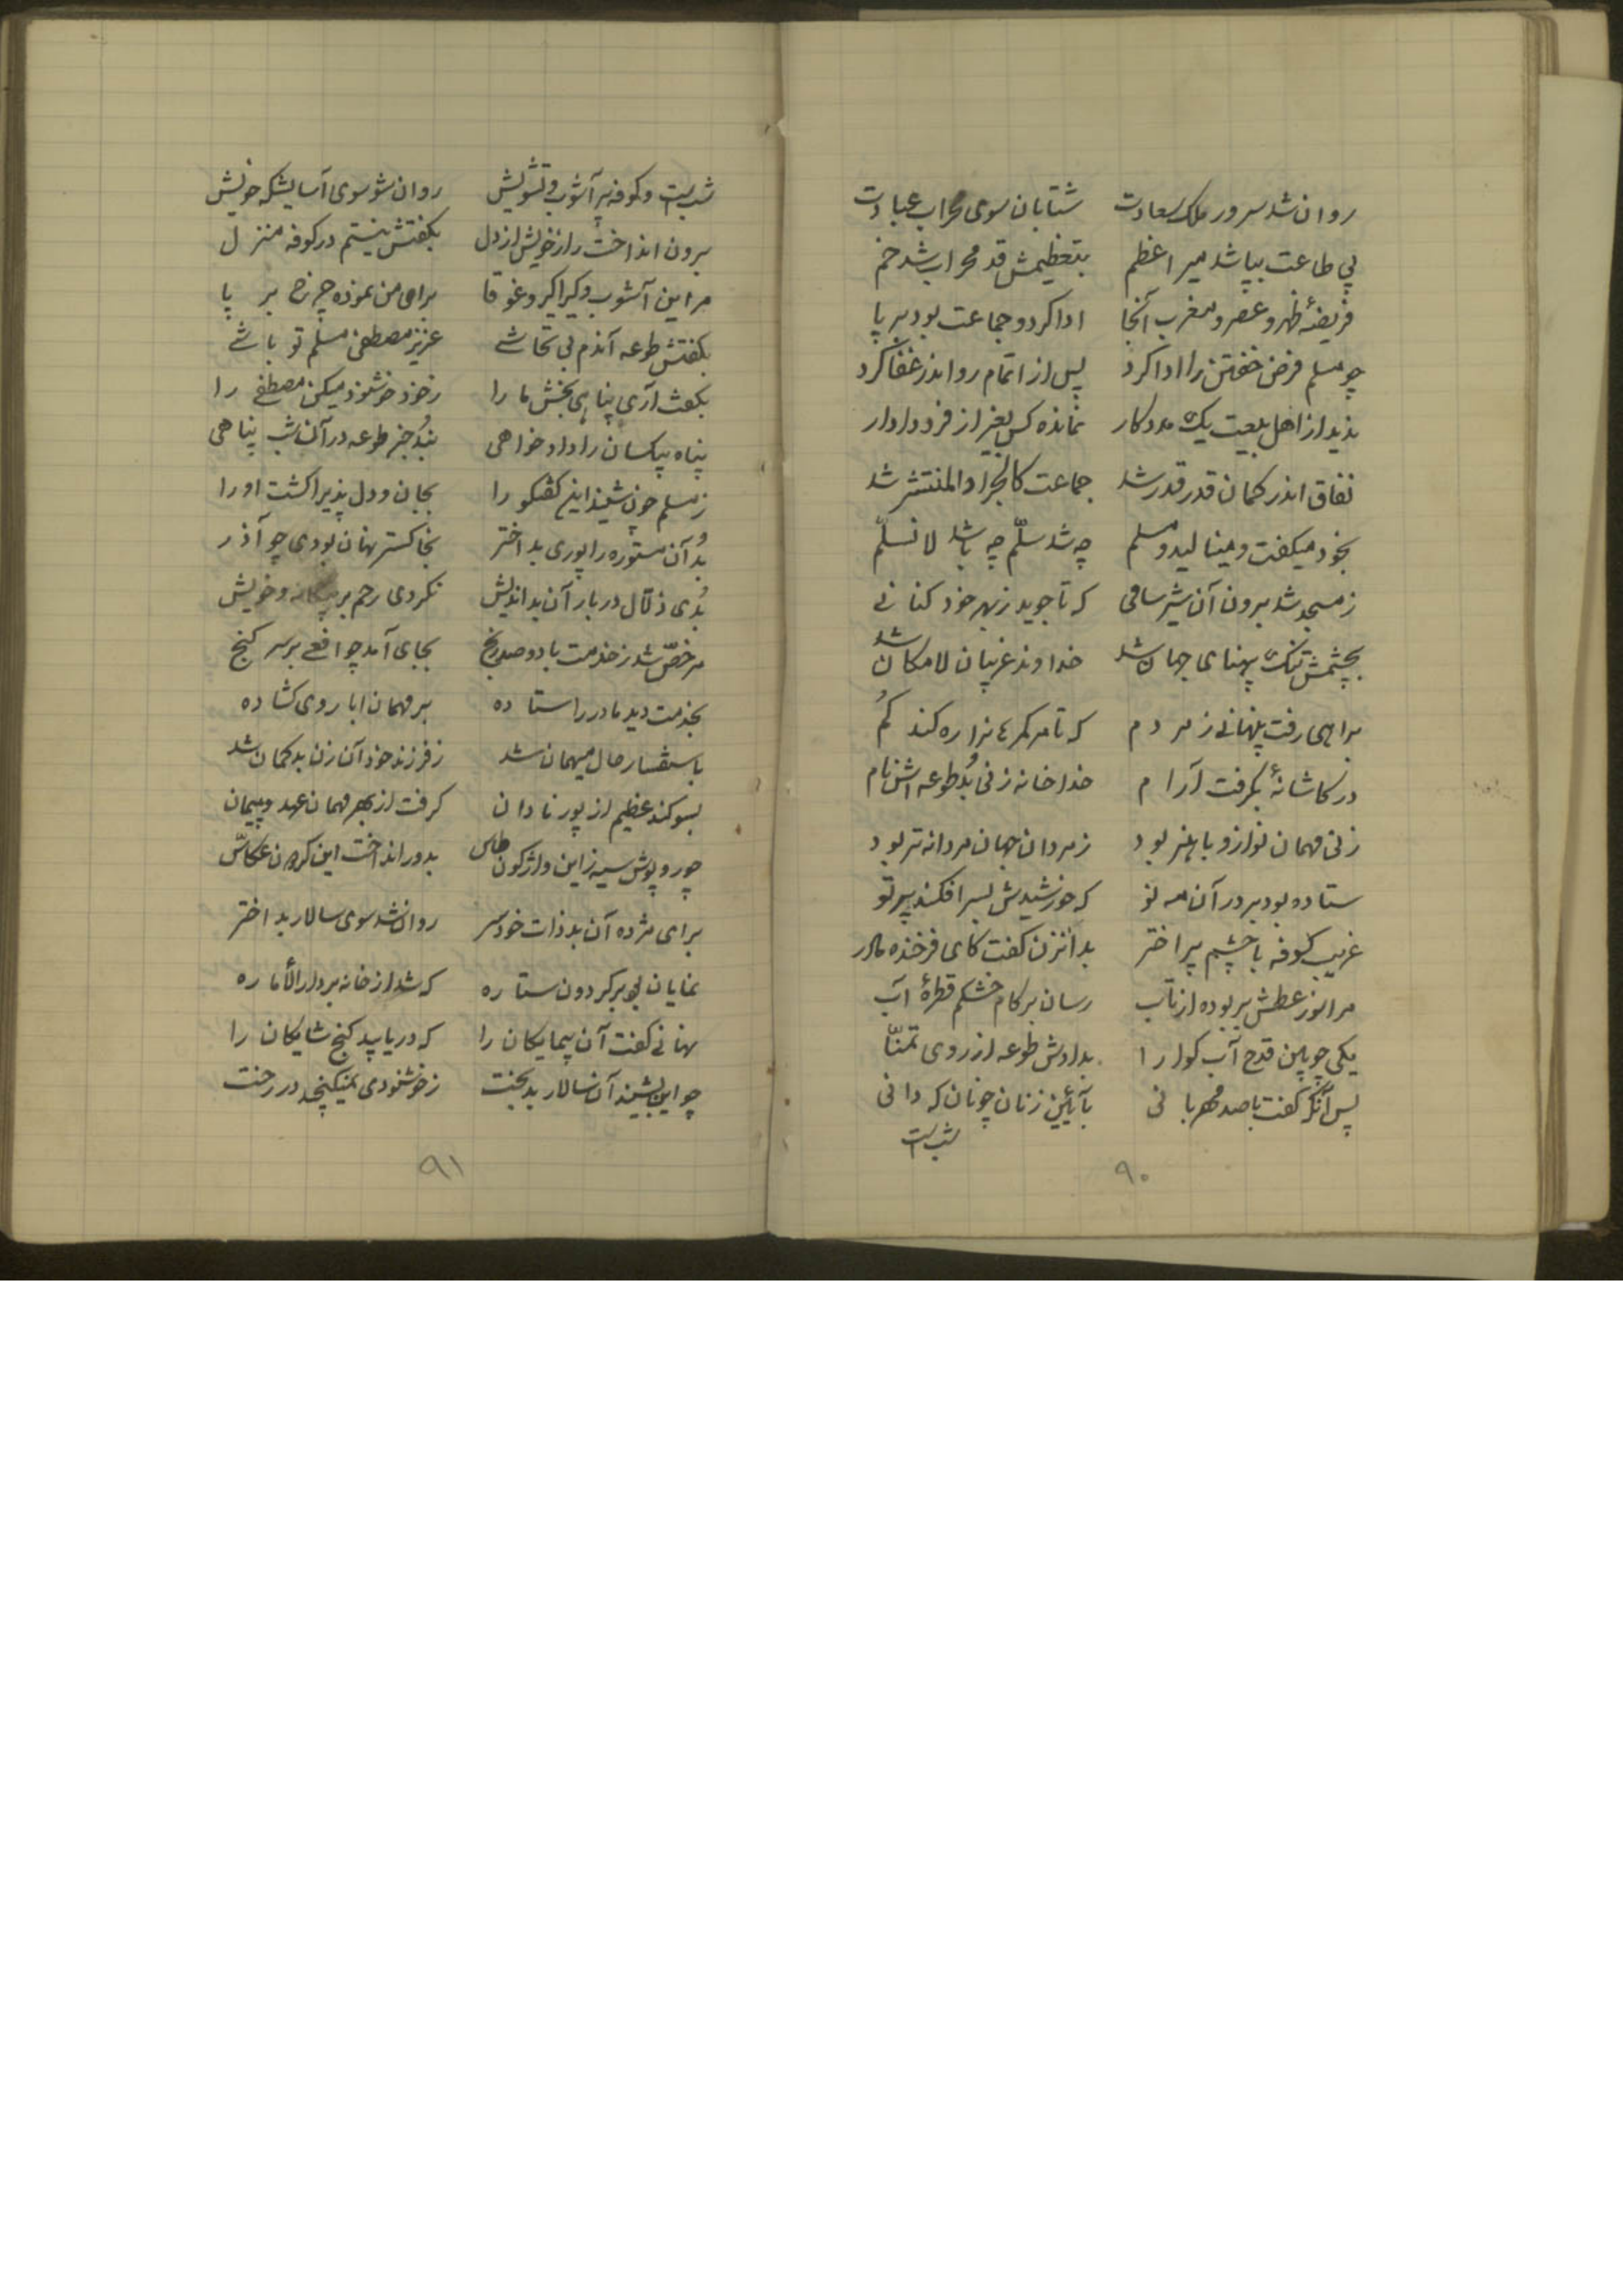 روان شد سرور ملک سعادت شتابان سوی محراب عبادت
پی طاعت بپا شد میر اعظم بتعظیمش قد محراب شد خم
فریضهٔ ظهر و عصر و مغرب آنجا ادا کرد و جماعت بود بر پا
چو مسلم فرض خفتن را ادا کرد پس از اتمام رو اندر قفا کرد
ندید از اهل بیعت یک مددکار نمانده کس بغیر از فرد دادار
نفاق اندر کمان قدر قدر شد جماعت کالجراد المنتشر شد
بخود میکفت و مینالید و مسلم چه شد سلّم چه باشد لا نسلّم
ز مسجد شد برون آن شیر سامی که تا جوید ز بهر خود کنانی
بچشمش تنک پهنای جهان شد خداوند غریبان لامکان شد
براهی رفت پنهانی ز مردم که تا مرکمرهانرا ره کند کُم
در کاشانهٔ بکرفت آرام خدا خانه زنی بُد طوعه اش نام
زنی مهمان نواز و با هنر بود ز مردان جهان مردانه تر بود
ستاده بود بر در آن مه نو که خورشیدش بسر افکند پرتو
غریب کوفه با چشم پر اختر بدانزن کفت کای فرخنده مادر
مرا نوز عطش بر بوده از تاب رسان بر کام خشکم قطرهٔ آب
یکی چوبین قدح آب کوارا بدادش طوعه از روی تمنّا
پس آنگه کفت با صد مهربانی بآیٔین زنان چونان که دانی
شب است
۹۰
شب است و کوفه پر آشوب و تشویش روان شو سوی آسایشکه خویش
برون انداخت راز خویش از دل بکفتش نیستم در کوفه منزل
مر این آشوب و کیراکیر و غوقا برای من نموده چرخ بر پا
بکفتش طوعه آندم بی تحاشی عزیز مصطفی مسلم تو باشی
بکفت آری پناهی بخش ما را ز خود خوشنود میکن مصطفی را
پناه بیکسان را داد خواهی نبُد جز طوعه در آن شب پناهی
ز مسلم چون شنید این کفتکو را بجان و دل پذیرا کشت او را
بُد آن مستوره را پوری بد اختر بخاکستر نهان بودی چو آذر
بُدی دلّال دربار آن بد اندیش نکردی رحم بر بیکانه و خویش
مرخصّ شد ز خدمت با دو صد رنج بجای آمد چو افعی بر سر کنج
بخدمت دید مادر را ستاده بر مهمان ابا روی کشاده
باستفسار حال میهمان شد ز فرزند خود آن زن بد کمان شد
بسوکند عظیم از پور نادان کرفت از بهر مهمان عهد و پیمان
چو روپوش سیه زاین واژکون طاس بدور انداخت این کردون عکاسّ
برای مژده آن بد ذات خودسر روان شد سوی سالار بد اختر
نمایان بُد بر کردون ستاره که شد از خانه بر دار الأماره
نهانی کفت آن پیمایکان را که دریابید کنج شایکان را
چو این بشنید آن سالار بدبخت ز خوشنودی نمیکنجد در رخت
۹۱